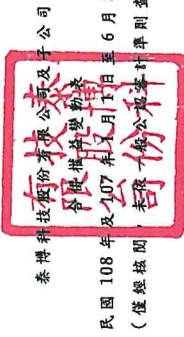 泰博科技股份有限公司及子公司
合併權益變動表
民國 108 年及 107 年 1 月 1 日至 6 月
(僅經核閱，未依一般公認審計準則查